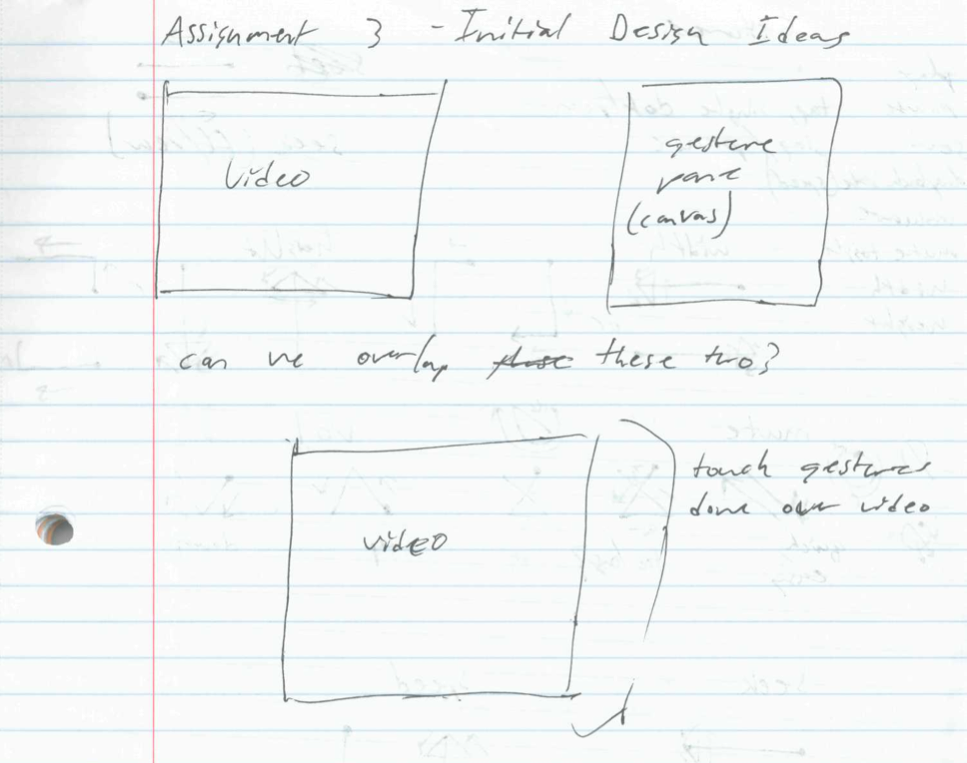 Assignment 3 - Initial Design Ideas
Video
gesture
pane
(canvas)
can we overlap these two?
video
touch gestures
done over video